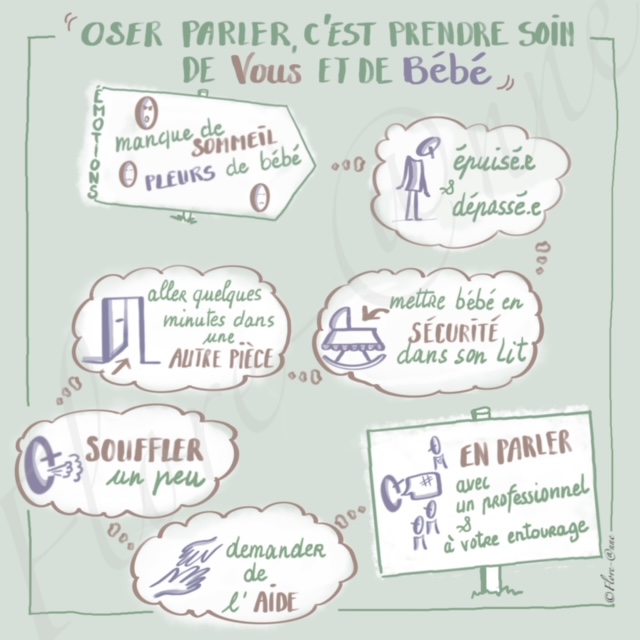 "OSER PARLER, C'EST PRENDRE SOIN
DE Vous ET DE Bébé"
ÉMOTIONS
manque de
SOMMEIL
PLEURS de bébé
épuisé.e
&
dépassé.e
mettre bébé en
SÉCURITÉ
dans son lit
aller quelques
minutes dans
une
AUTRE PIÈCE
SOUFFLER
un peu
demander
de
l'AIDE
EN PARLER
avec
un professionnel
&
à votre entourage